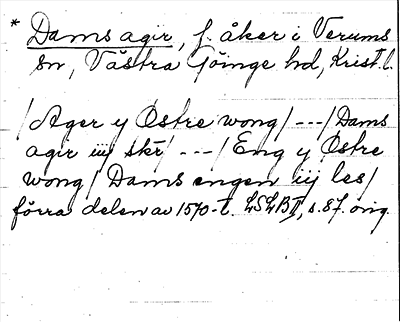 * Dams agir, f. åker i Verums
sn, Västra Göinge hd, Krist. l.
/Ager y Østre wong/ ---/Dams
agir iij skr/ ---/Eng y Østre
wong/ Dams engen iij les/
förra delen av 1570-t. LSLB II, s. 87. orig.